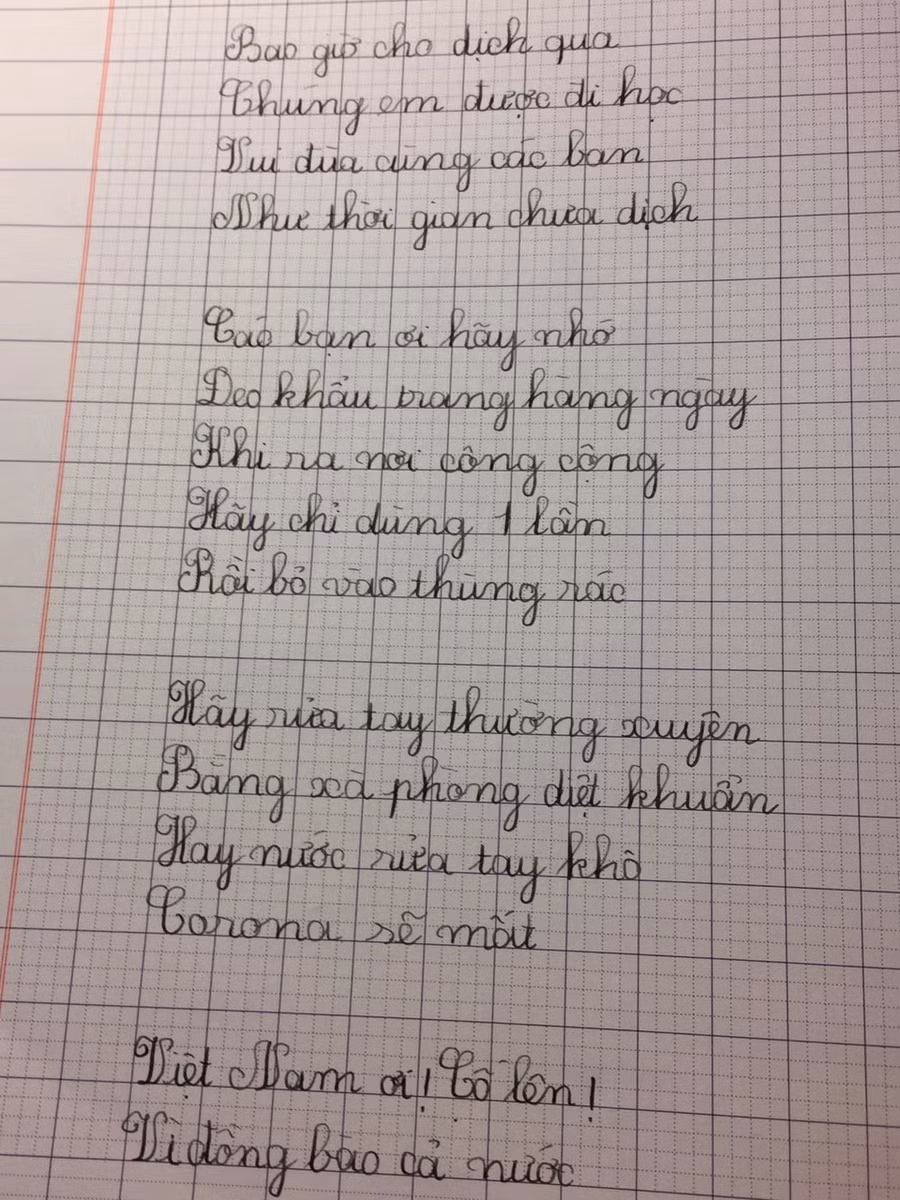 Bao giờ cho dịch qua
Chúng em được đi học
Vui đùa cùng các bạn
Như thời gian chưa dịch
Các bạn ơi hãy nhớ
Đeo khẩu trang hàng ngày
Khi ra nơi công cộng
Hãy chỉ dùng 1 lần
Rồi bỏ vào thùng rác
Hãy rửa tay thường xuyên
Bằng xà phòng diệt khuẩn
Hay nước rửa tay khô
Corona sẽ mất
Việt Nam ơi! Cố lên!
Vì đồng bào cả nước